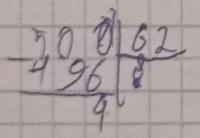 500 62
- 496 8
4